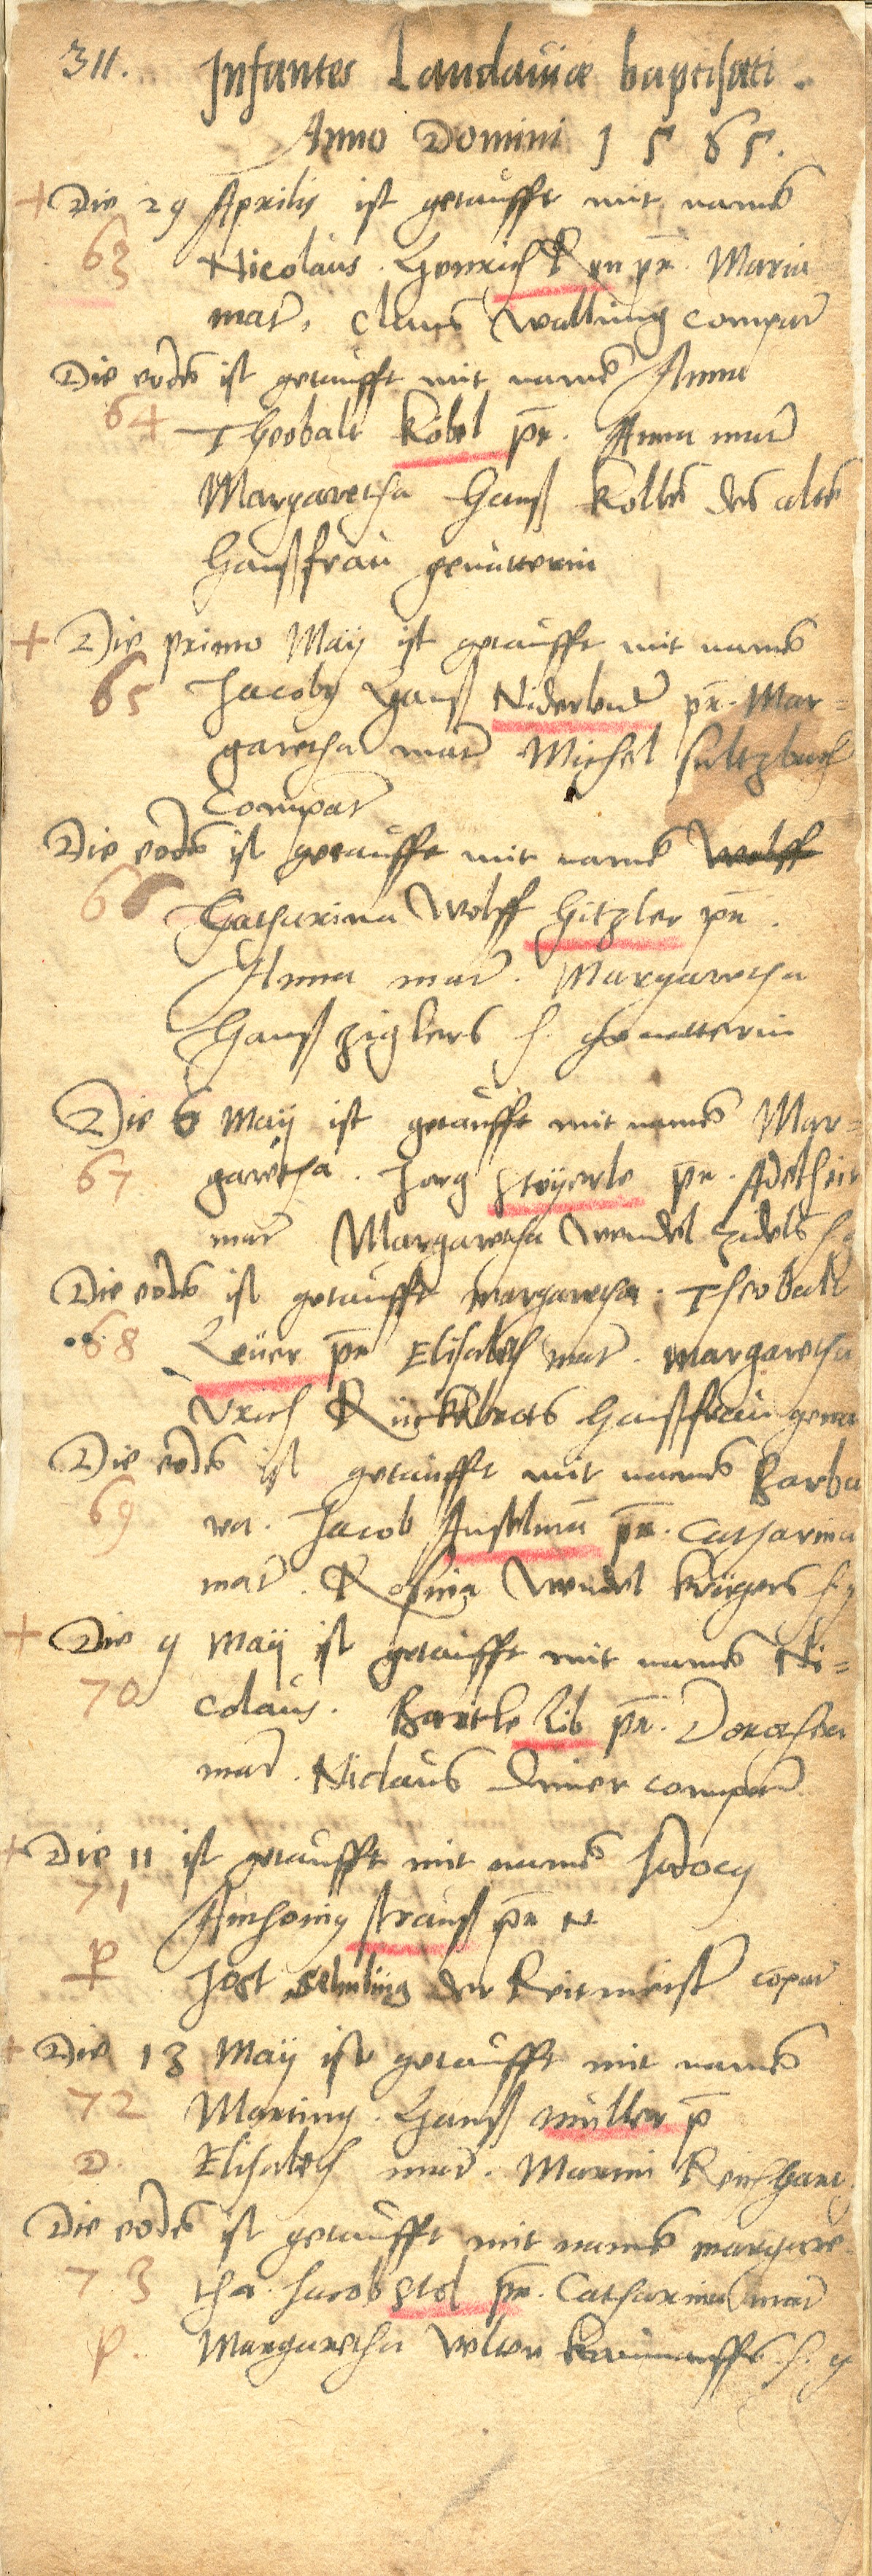 311. Infantes Landaviæ baptisati.
Anno Domini 1565.
+ Die 29 Aprilis ist getaufft mit namē
63 Nicolaus. Henrich Ren pr. Maria
mat̄. Claus Walling compat̄
Die eodē ist getaufft mit namē Anna
64 Theobalt Köbel pr̄. Anna mat̄
Margaretha Hanß Kolbē des altē
Haußfrau gevatterin
+ Die primo Maÿ ist getaufft mit namē
65 Jacobg Hanß pr̄. Mar=
garetha mat̄ Michel Sultzbach
Compat̄
Die eodē ist getaufft mit namē Wolff
66 Catharina Wolff Hitzler pr̄.
Anna mat̄. Margaretha
Hanß Ziglers h. gevatterin
Die 6 Maÿ ist getaufft mit namē Mar=
67 garetha. Jorg pr̄. Adelheit
mat̄ Margaretha Wendel Zidels h g
Die eodē ist getaufft Margaretha. Theobalt
68 Leüer pr̄ Elisabeth mat̄. Margaretha
Haußfrau geva
Die eodē ist getaufft mit namē Barba
69 ra. Jacob Anselmā pr̄. Catharina
mat̄. Rosina Wendel Krügers h. g
+ Die 9 Maÿ ist getaufft mit namē Ni=
70 colaus. Bartle Lib pr̄. Dorothea
mat̄. Niclaus compat̄
+ Die 11 ist getaufft mit namē Jodocg
71 Anthonig Strauß pr̄ N
P Jost der Reitmeister copat̄
+ Die 13 Maÿ ist getaufft mit namē
72 Marting. Hanß Müller p̄
D. Elisabeth mat̄. Martin Reichhart
Die eodē ist getaufft mit namē Margare
73 tha. Jacob Stol pr̄. Catharina mat̄
P. Margaretha Velten h. g